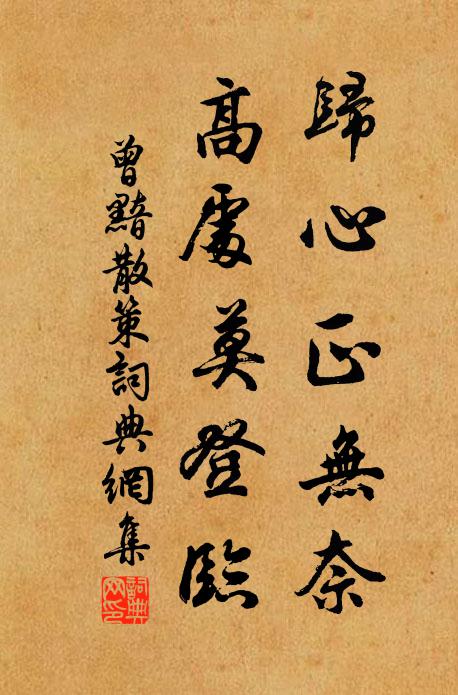 歸心正無奈
高處莫登臨
曾黯散策詞典網集
詞典網印